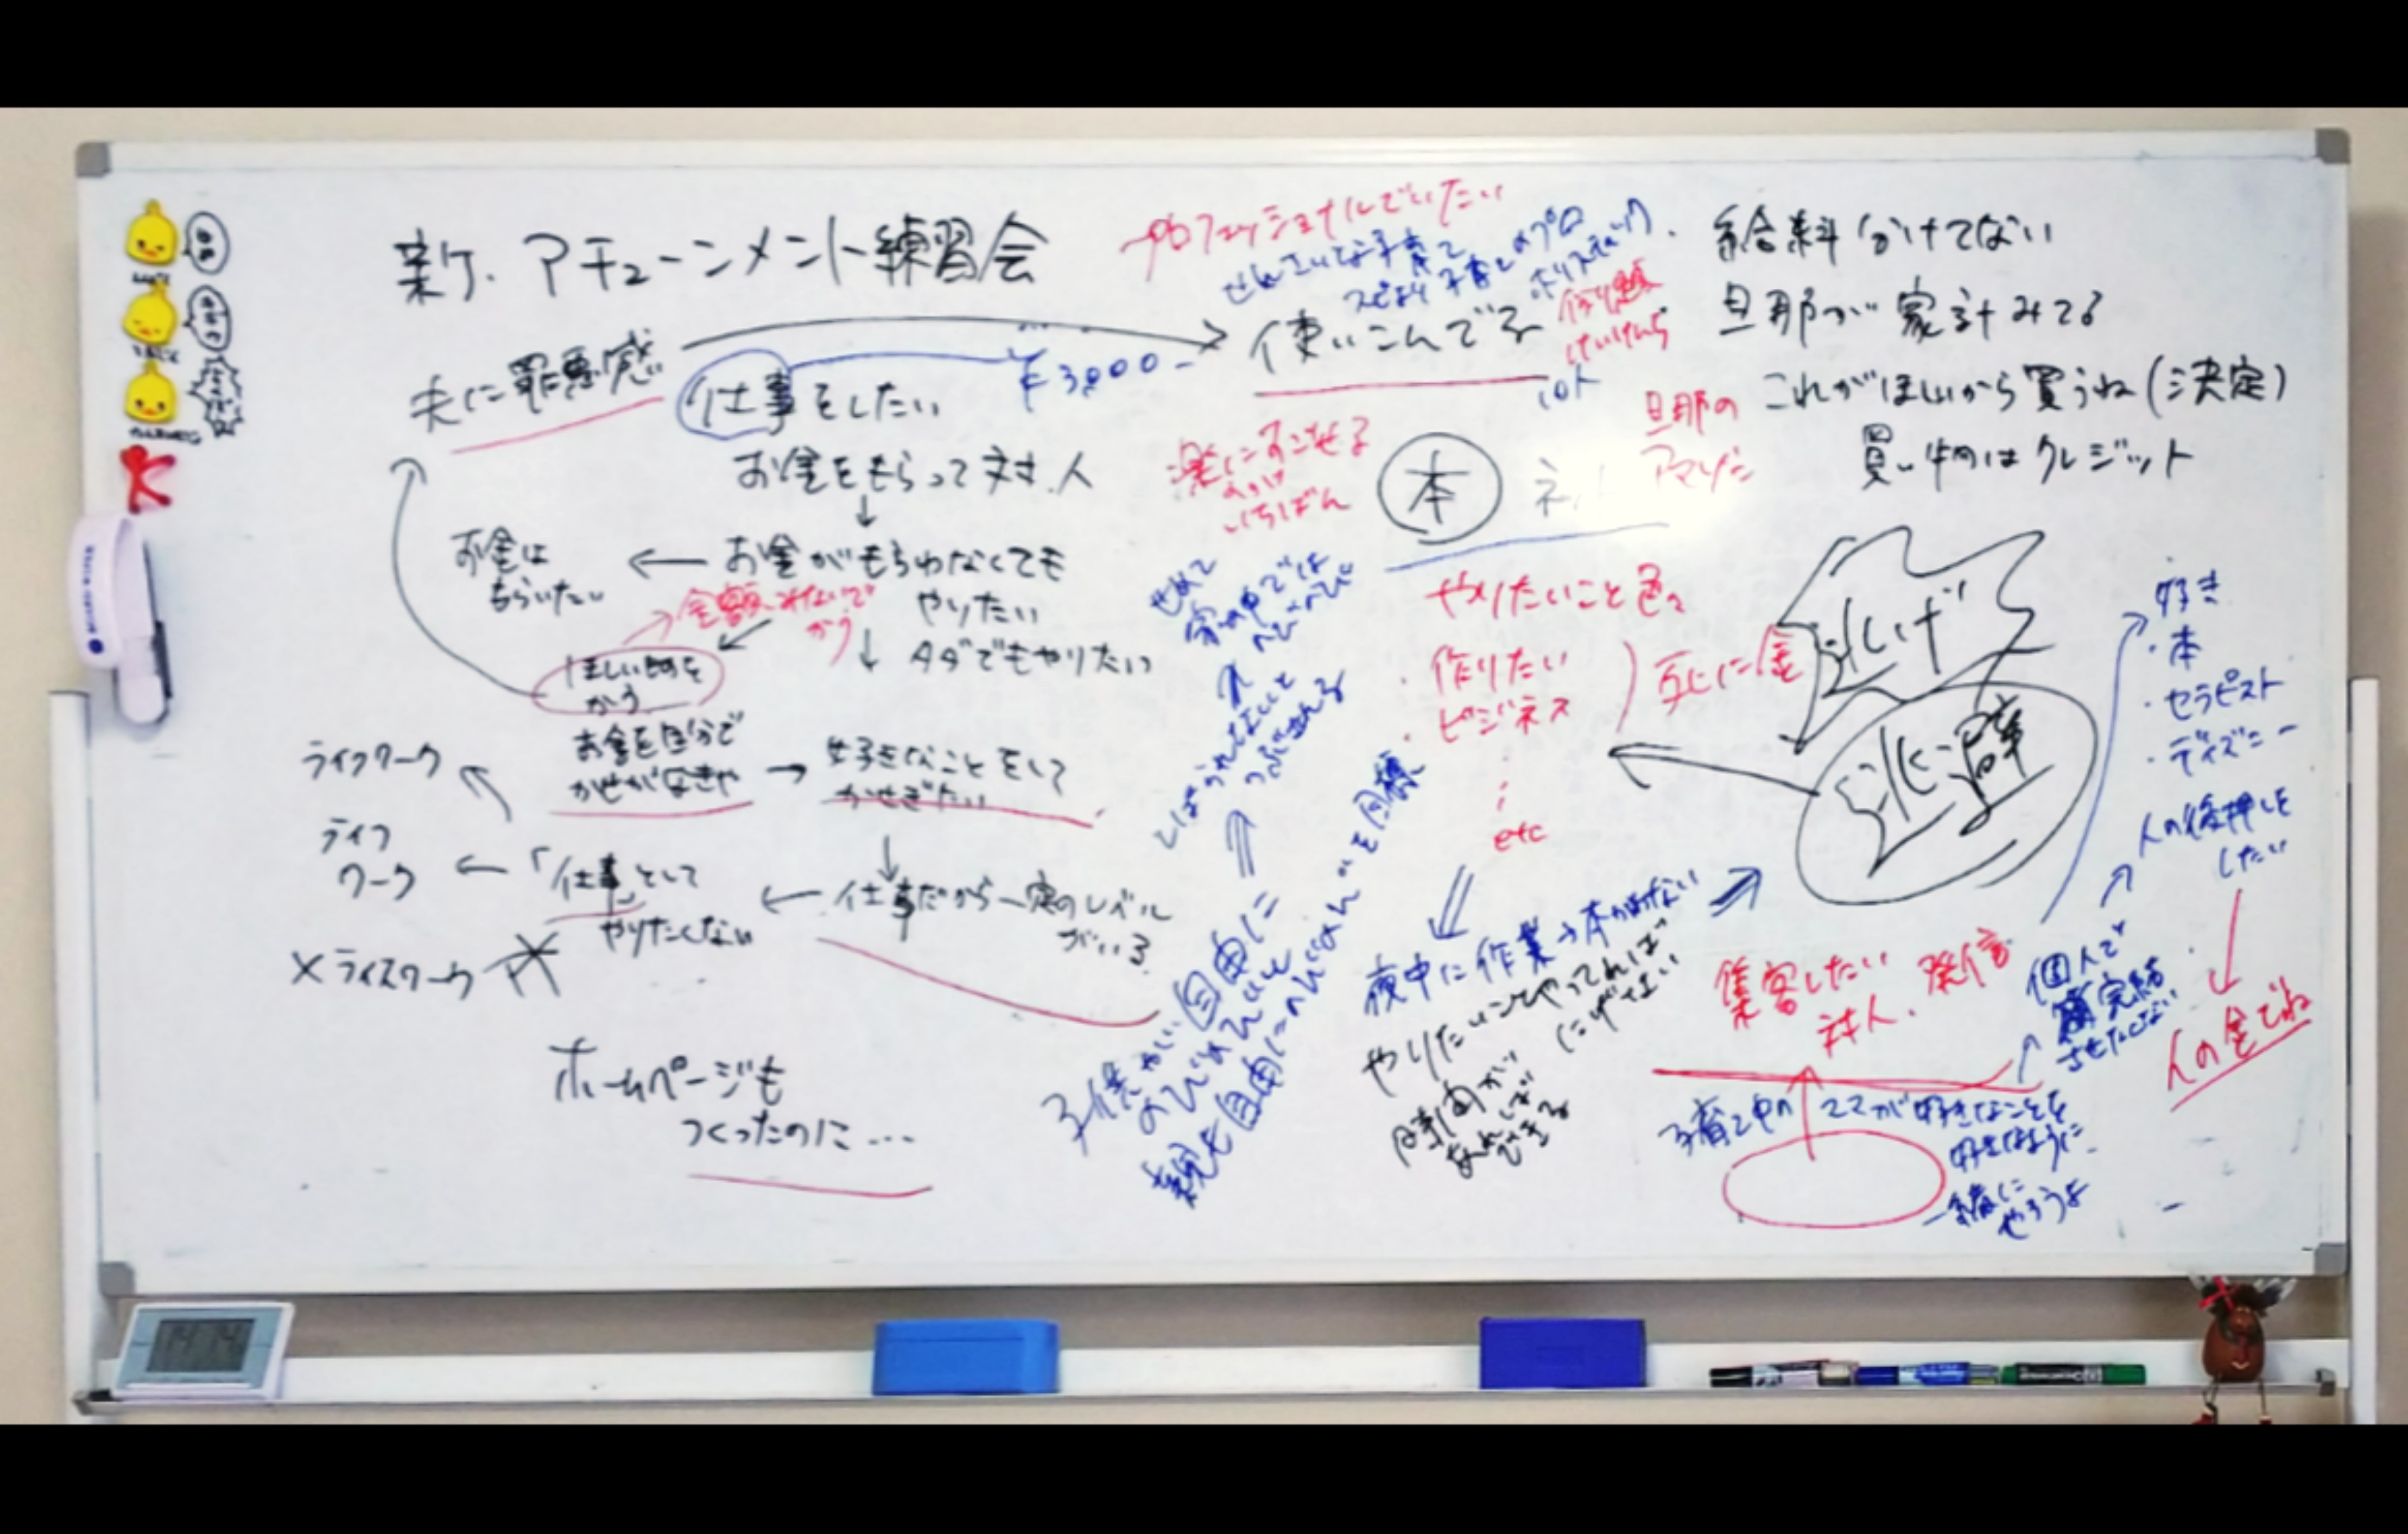 新ケ.アチューンメント練習会
夫に罪悪感
仕事をしたい
¥3,000-
お金をもらって対.人
お金がもらわなくても
やりたい
お金は
もらいたい
全額
かう
タダでもやりたい
かう
お金を自分で
かせがなきゃ
好きなことをして
かせぎたい
ライフワーク
ライフ
ワーク
「仕事」として
やりたくない
仕事だから一定のレベル
がいる
×ライスワーク
ホームページも
つくったのに…
プロフェッショナルでいたい
子育てのプロ
ホリスティック
使いこんでる
10人
楽にすごせる
いちばん
本
旦那の
アマゾン
給料分けてない
旦那が家計みてる
これがほしいから買うね(決定)
買い物はクレジット
せめて
家の中では
しばられてないと
子供が自由に
親も自由にのびのびを目標
やりたいこと色々
・作りたい
・ビジネス
etc
互いに金
逃げ
逃避
夜中に作業→本かけない
やりたいことやってれば
にげない
時間が
あれば
できる
集客したい
対人.発信
子育て中のママが好きなことを
好きなように
一緒に
やろうよ
個人で
完結
させたくない
人の後押しを
したい
人の金でね
・好き
・本
・セラピスト
・ディズニー